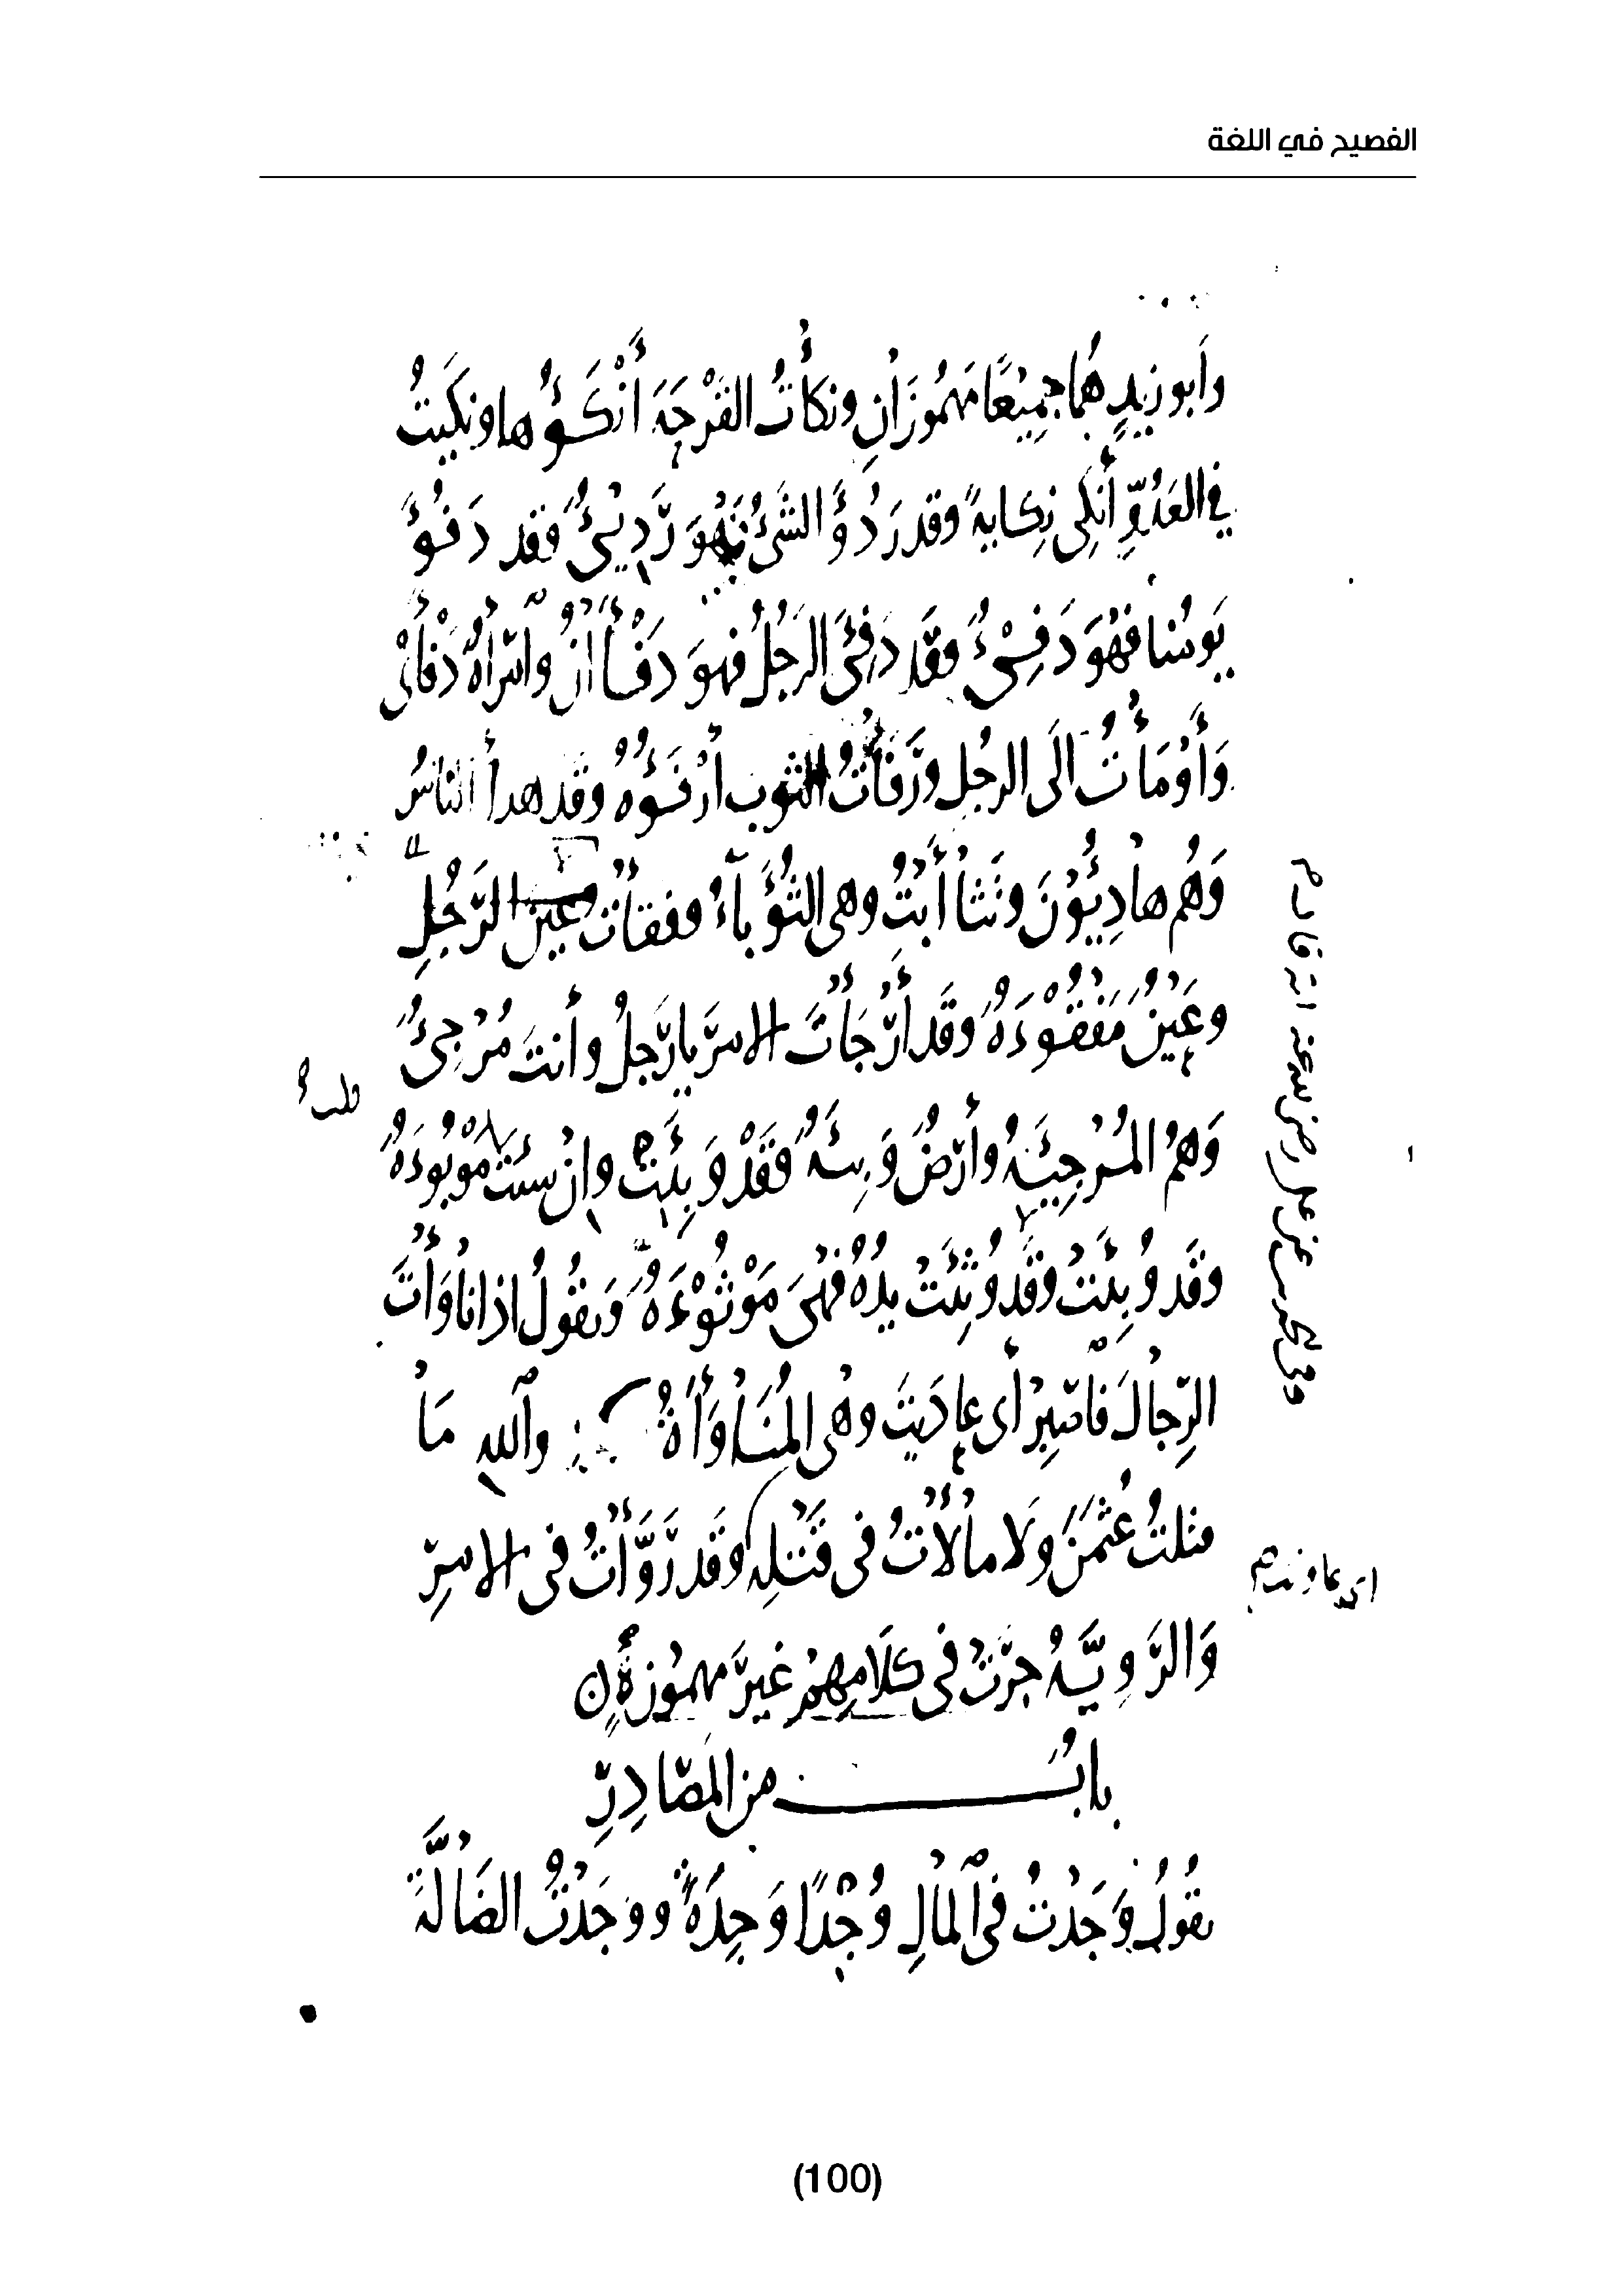 الفصيح في اللغة
وَأبو زيدٍ هُما جَمِيْعًا مَهمُوزَانِ ونكأْتُ القَرْحَةَ أَنْكَـؤُها ونكَيتُ
في العَدُوِّ أنكِي نِكايةً وقد رَدُؤَ الشَّئُ فَهُوَ رَدِيْئٌ وقد دَفُؤَ
يَومُنا فهُوَ دَفِـئٌ وقَد دَفِئَ الرَجُلُ فهوَ دَفْـأَانُ وَامْرَأةٌ دَفْأَى
وَأَوْمَأتُ الَى الرجُلِ ورَفَأْتُ الثوب أرْفَـؤُهُ وقد هدأ الناسُ
وَهُم هادِيُؤْنَ وتَثاأَبْتُ وهى الثُؤَبآءُ وفقأتُ عَينَ الرَّجُلِ
وعَيْنٌ مَفقُوْءَةٌ وقَد أَرْجَأْتَ الامرَ يا رَجلُ وأنتَ مُرْجِئٌ
وَهُمُ المُرْجِيَةُ وأرضٌ وَبِئَةٌ وقَدْ وَبِئَتْ وإنْ شئتَ مَوْبُوءَةٌ
وقَد وُبِئَتْ وقَد وُثِئَتْ يدُهُ فَهْىَ مَوْثُوْءَةٌ وَتقُولُ اذا ناوَأتَ
الرِّجالَ فاصْبِرْ أى عادَيتَ وهْى المُنَاوَأَةُ واللهِ مَا
قتلتُ عُثمنَ وَلا مالأتُ فى قَتْلِه وقَد رَوَّأتُ فى الامرِ
وَالرَّوِيَّةُ جرَتْ فى كلَامِهِمْ غيرَ مهموُزةٍ
بابُ من المصَادِرِ
تقُولُ وَجَدْتُ فى المَالِ وُجْدًا وَجِدَةً ووَجَدْتُ الضَالَّةَ
(100)